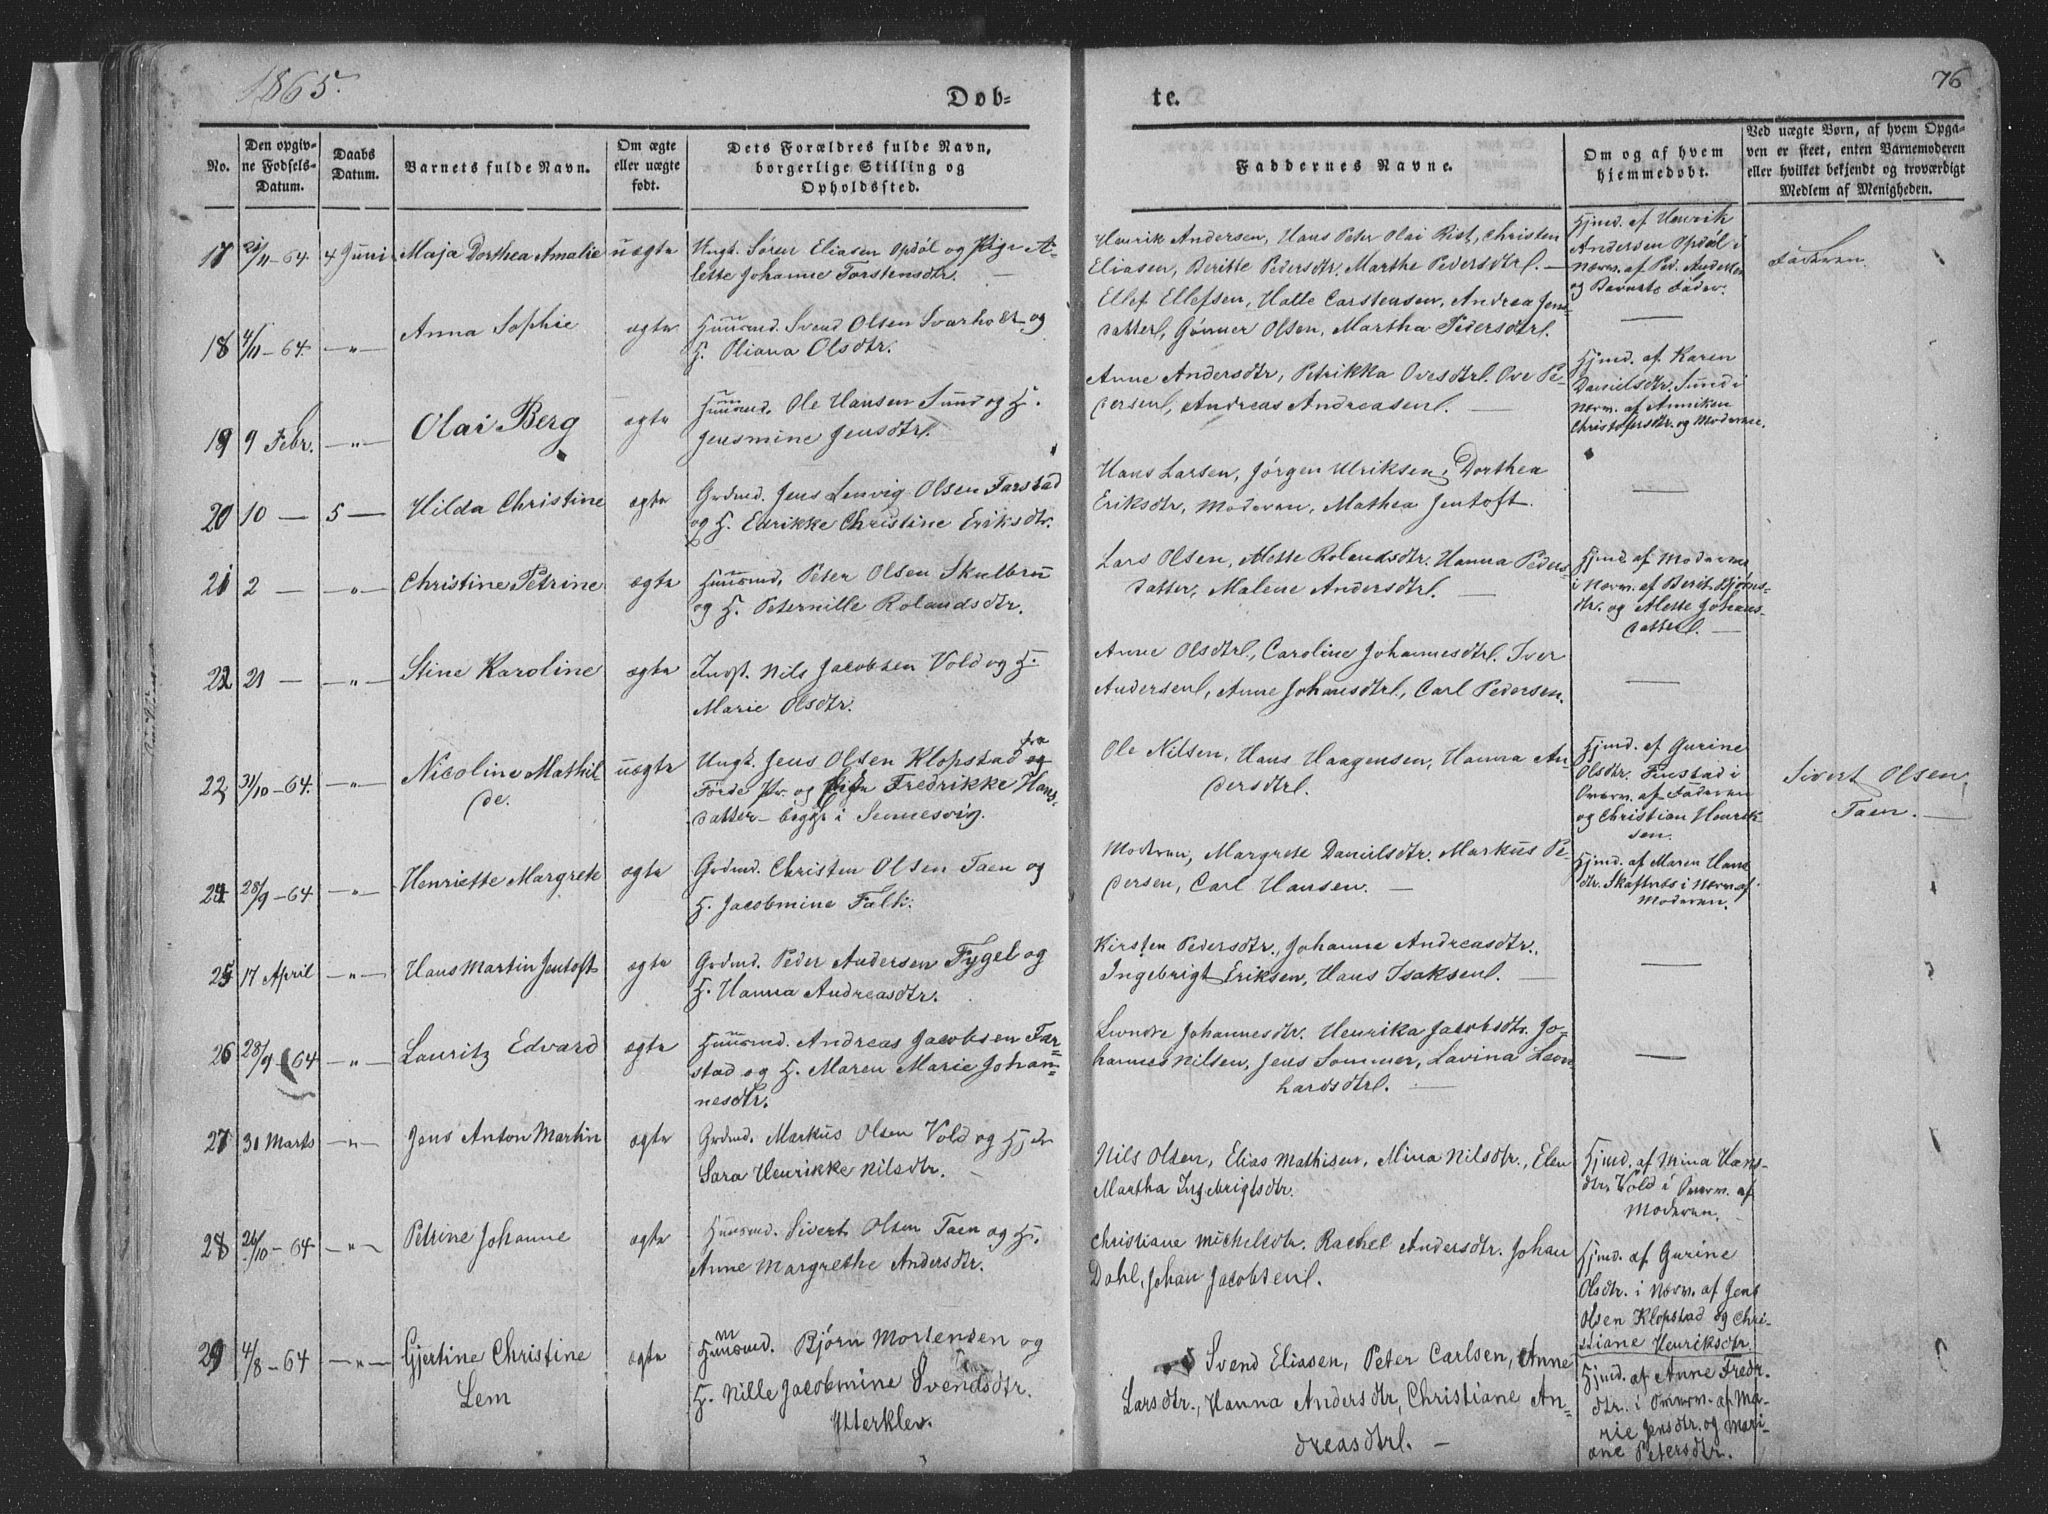 1865.
Døb-
te.
76
No.
Den opgiv-
ne Fødsels-
Datum.
Daabs
Datum.
Barnets fulde Navn.
Om ægte
eller uægte
født.
Dets Forældres fulde Navn,
borgerlige Stilling og
Opholdssted.
Faddernes Navne.
Om og af hvem
hjemmedøbt.
Ved uægte Børn, af hvem Opga-
ven er skeet, enten Barnemoderen
eller hvilket bekjendt og troværdigt
Medlem af Menigheden.
17 21/11-64. 4 Juni Maja Dorthea Amalie uægte
Ungk. Sören Eliasen Opdöl og Pige A-
lette Johanne Torstensdtr. —
Henrik Andersen, Hans Peter Olai Rist, Christen
Eliasen, Beritte Pedersdtr. Marthe Pedersdtr. —
Hjmd. af Henrik
Andersen Opdöl i
Nærv. af Ped. Andersen
og Barnets Fader.
Faderen.
18 4/11-64. —"— Anna Sophie ægte
Huusmd. Svend Olsen Svarholt og
H. Oliana Olsdtr.
Ellef Ellefsen, Halte Carstensen, Andrea Jens
datter, Gunner Olsen, Martha Pedersdtr.
—
19 9 Febr. —"— Olai Berg ægte
Huusmd. Ole Hansen Sund og H.
Jensmine Jensdtr.
Anne Andersdtr, Petrikka Ovesdtr. Ove Pe-
dersen, Andreas Andreasen. —
Hjmd. af Karen
Danielsdtr. Sund i
Nærv. af Anniken
Christofersdtr. og Moderen.
20 10 — 5 — Hilda Christine ægte
Grdmd. Jens Lenvig Olsen Farstad
og H. Edrikke Christine Eriksdtr.
Hans Larsen, Jørgen Ulriksen, Dorthea
Eriksdtr, Moderen, Mathea Jentoft.
—
21 2 — —"— Christine Petrine ægte
Huusmd. Peter Olsen Skulbru
og H. Peternille Rolandsdtr.
Lars Olsen, Mette Rolandsdtr. Hanna Peders-
datter, Malene Andersdtr. —
Hjmd. af Moderen
i Nærv. af Berit Bjørns-
dtr. og Mette Johans-
datter. —
22 21 — —"— Stine Karoline ægte
Indst. Nils Jacobsen Vold og H.
Marie Olsdtr.
Anne Olsdtr., Caroline Johannesdtr. Iver
Andersen, Anne Johansdtr, Carl Pedersen.
—
22, 31/10-64. —"— Nicoline Mathil
de. uægte
Ungk. Jens Olsen Klopstad fra
Förde Pr. og Pige Fredrikke Hans-
datter — begge i Sennesvig.
Ole Nilsen, Hans Haagensen, Hanna An-
dersdtr.
Hjmd. af Gurine
Olsdtr. Finstad i
Overv. af Faderen
og Christian Henrik-
sen.
Sivert Olsen
Taen. —
24 28/9-64 —"— Henriette Margrete ægte
Grdmd. Christen Olsen Taen og
H. Jacobmine Falk.
Moderen, Margrete Danielsdtr. Markus Pe-
dersen, Carl Hansen. —
Hjmd. af Maren Hans
dtr. Skaftnes i Nærv. af
Moderen.
25 17 April —"— Hans Martin Jentoft ægte
Grdmd. Peder Andersen Fygel og
H. Hanna Andreasdtr.
Kirsten Pedersdtr., Johanne Andreasdtr.,
Ingebrigt Eriksen, Hans Isaksen. —
—
26 28/9-64 —"— Lauritz Edvard ægte
Huusmd. Andreas Jacobsen Far-
stad og H. Maren Marie Johan-
nesdtr.
Johannesdtr. Henrika Jacobsdtr. Jo-
hannes Nilsen, Jens Sommer, Lavina Leon
hardsdtr. —
—
27 31 Marts —"— Jens Anton Martin ægte
Grdmd. Markus Olsen Vold og Hj
Sara Henrikke Nilsdtr.
Nils Olsen, Elias Mathisen, Mina Nilsdtr., Elen
Martha Ingebrigtsdtr.
Hjmd. af Mina Hans-
dtr. Vold i Overv. af
Moderen.
28 26/10-64 —"— Petrine Johanne ægte
Huusmd. Sivert Olsen Taen og H.
Anne Margrethe Andersdtr.
Christiane Michelsdtr. Rachel Andersdtr. Johan
Dahl, Johan Jacobsen.
Hjmd. af Gurine
Olsdtr. i Nærv. af Jens
Olsen Klopstad og Chri-
stiane Henriksdtr.
29 4/8-64 —"— Gjertine Christine
Lem ægte
Huusmd. Bjørn Mortensen og
H. Nille Jacobmine Svendsdtr.
Ytterklev.
Svend Eliasen, Peter Carlsen, Anne
Larsdtr., Hanna Andersdtr, Christiane An-
dreasdtr. —
Hjmd. af Anne Fredr.
dtr. i Overv. af Ma-
rie Jensdtr. og Mari-
ane Petersdtr.